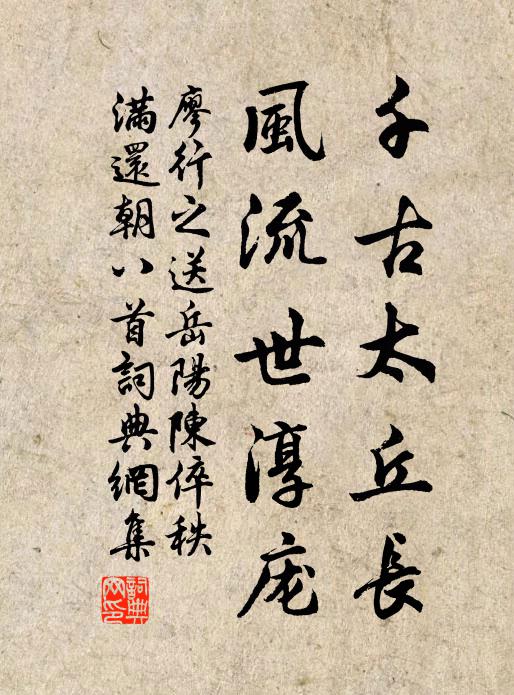 千古太丘長
風流世淳庬
廖行之送岳陽陳倅秩
滿還朝八首詞典網集
詞典網印